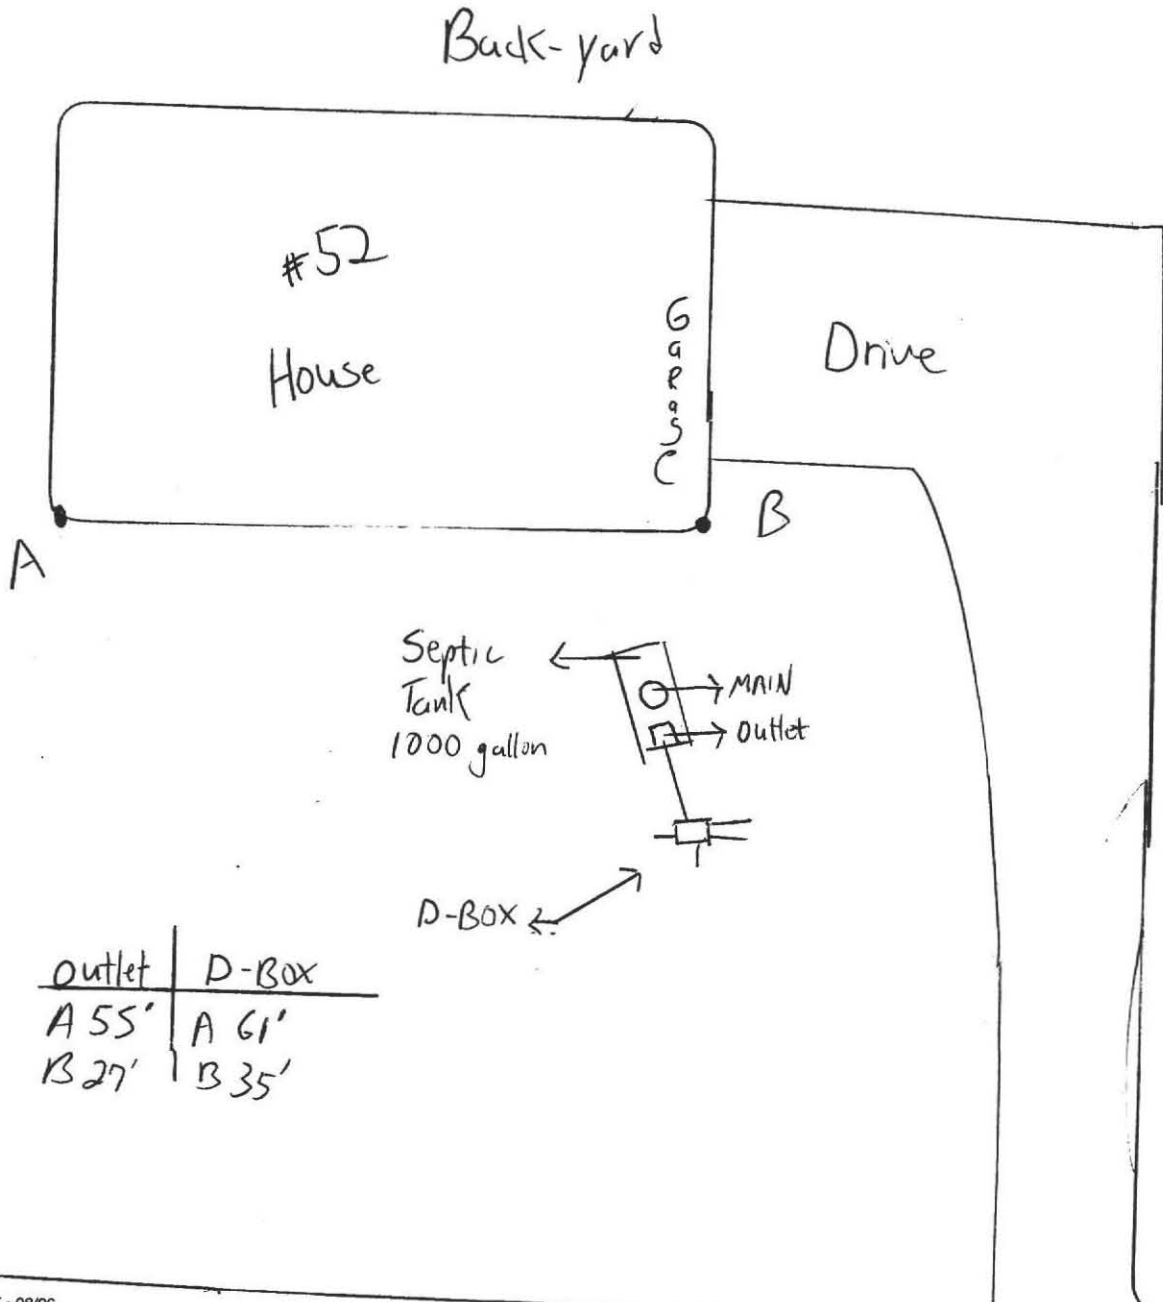 Back-yard
#52
House
Garage
Drive
A
B
Septic
Tank
1000 gallon
MAIN
outlet
D-BOX
outlet | D-Box
A 55' | A 61'
B 27' | B 35'